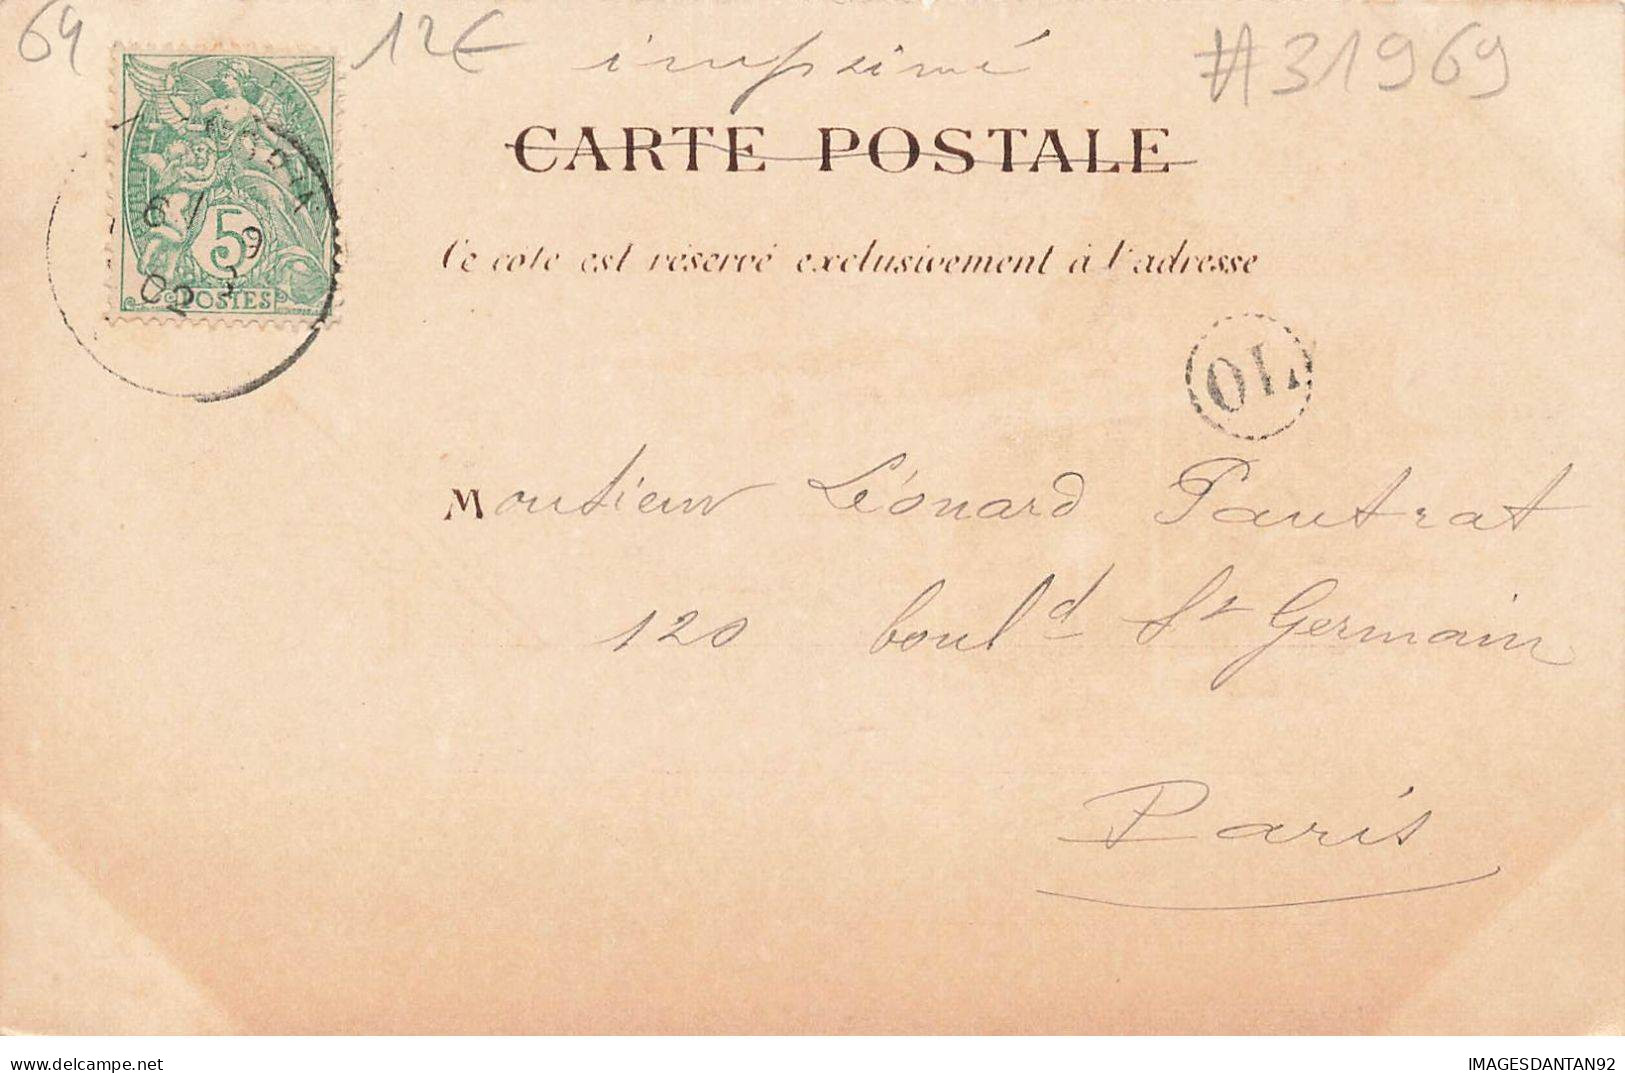 64 12€ imprimé #31969
CARTE POSTALE
Ce côté est réservé exclusivement à l'adresse
5
POSTES
6 / 9
02
OL
Monsieur Léonard Pautrat
120 boul^d S^t Germain
Paris
delcampe.net
IMAGESDANTAN92